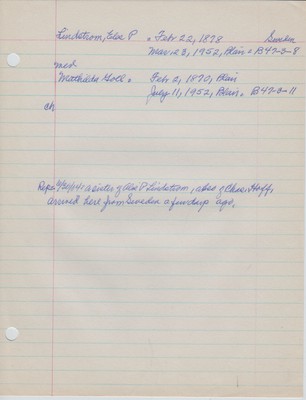 Lindstrom, Else P. Feb 22, 1878 Sweden
Mar 23, 1952, Blair - B47-2-8
med
Mathilda Goll. Feb 2, 1870, Blair
July 11, 1952, Blair. B47-2-11
ch
4/30/14: a sister of Else P Lindstrom, also of Chas. Hoff,
arrived here from Sweden a few days ago.